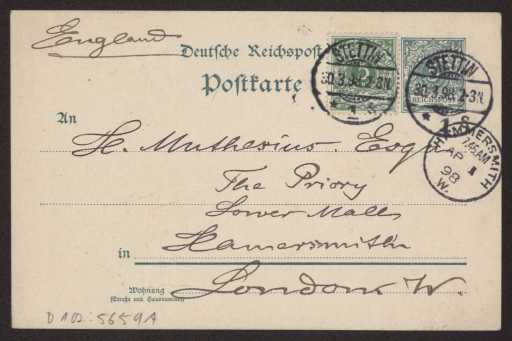 England
Deutsche Reichspost
Postkarte
STETTIN
30.3.98.2-3N.
* 1 s
STETTIN
30.3.98.2-3N.
* 1 s
REICHSPOST
HAMMERSMITH
7.45AM
AP 1
98
W.
An
H. Muthesius. Esqu
The Priory
Lower Mall
Hamersmith
in
London W.
Wohnung
(Straße und Hausnummer)
D 102:5659A